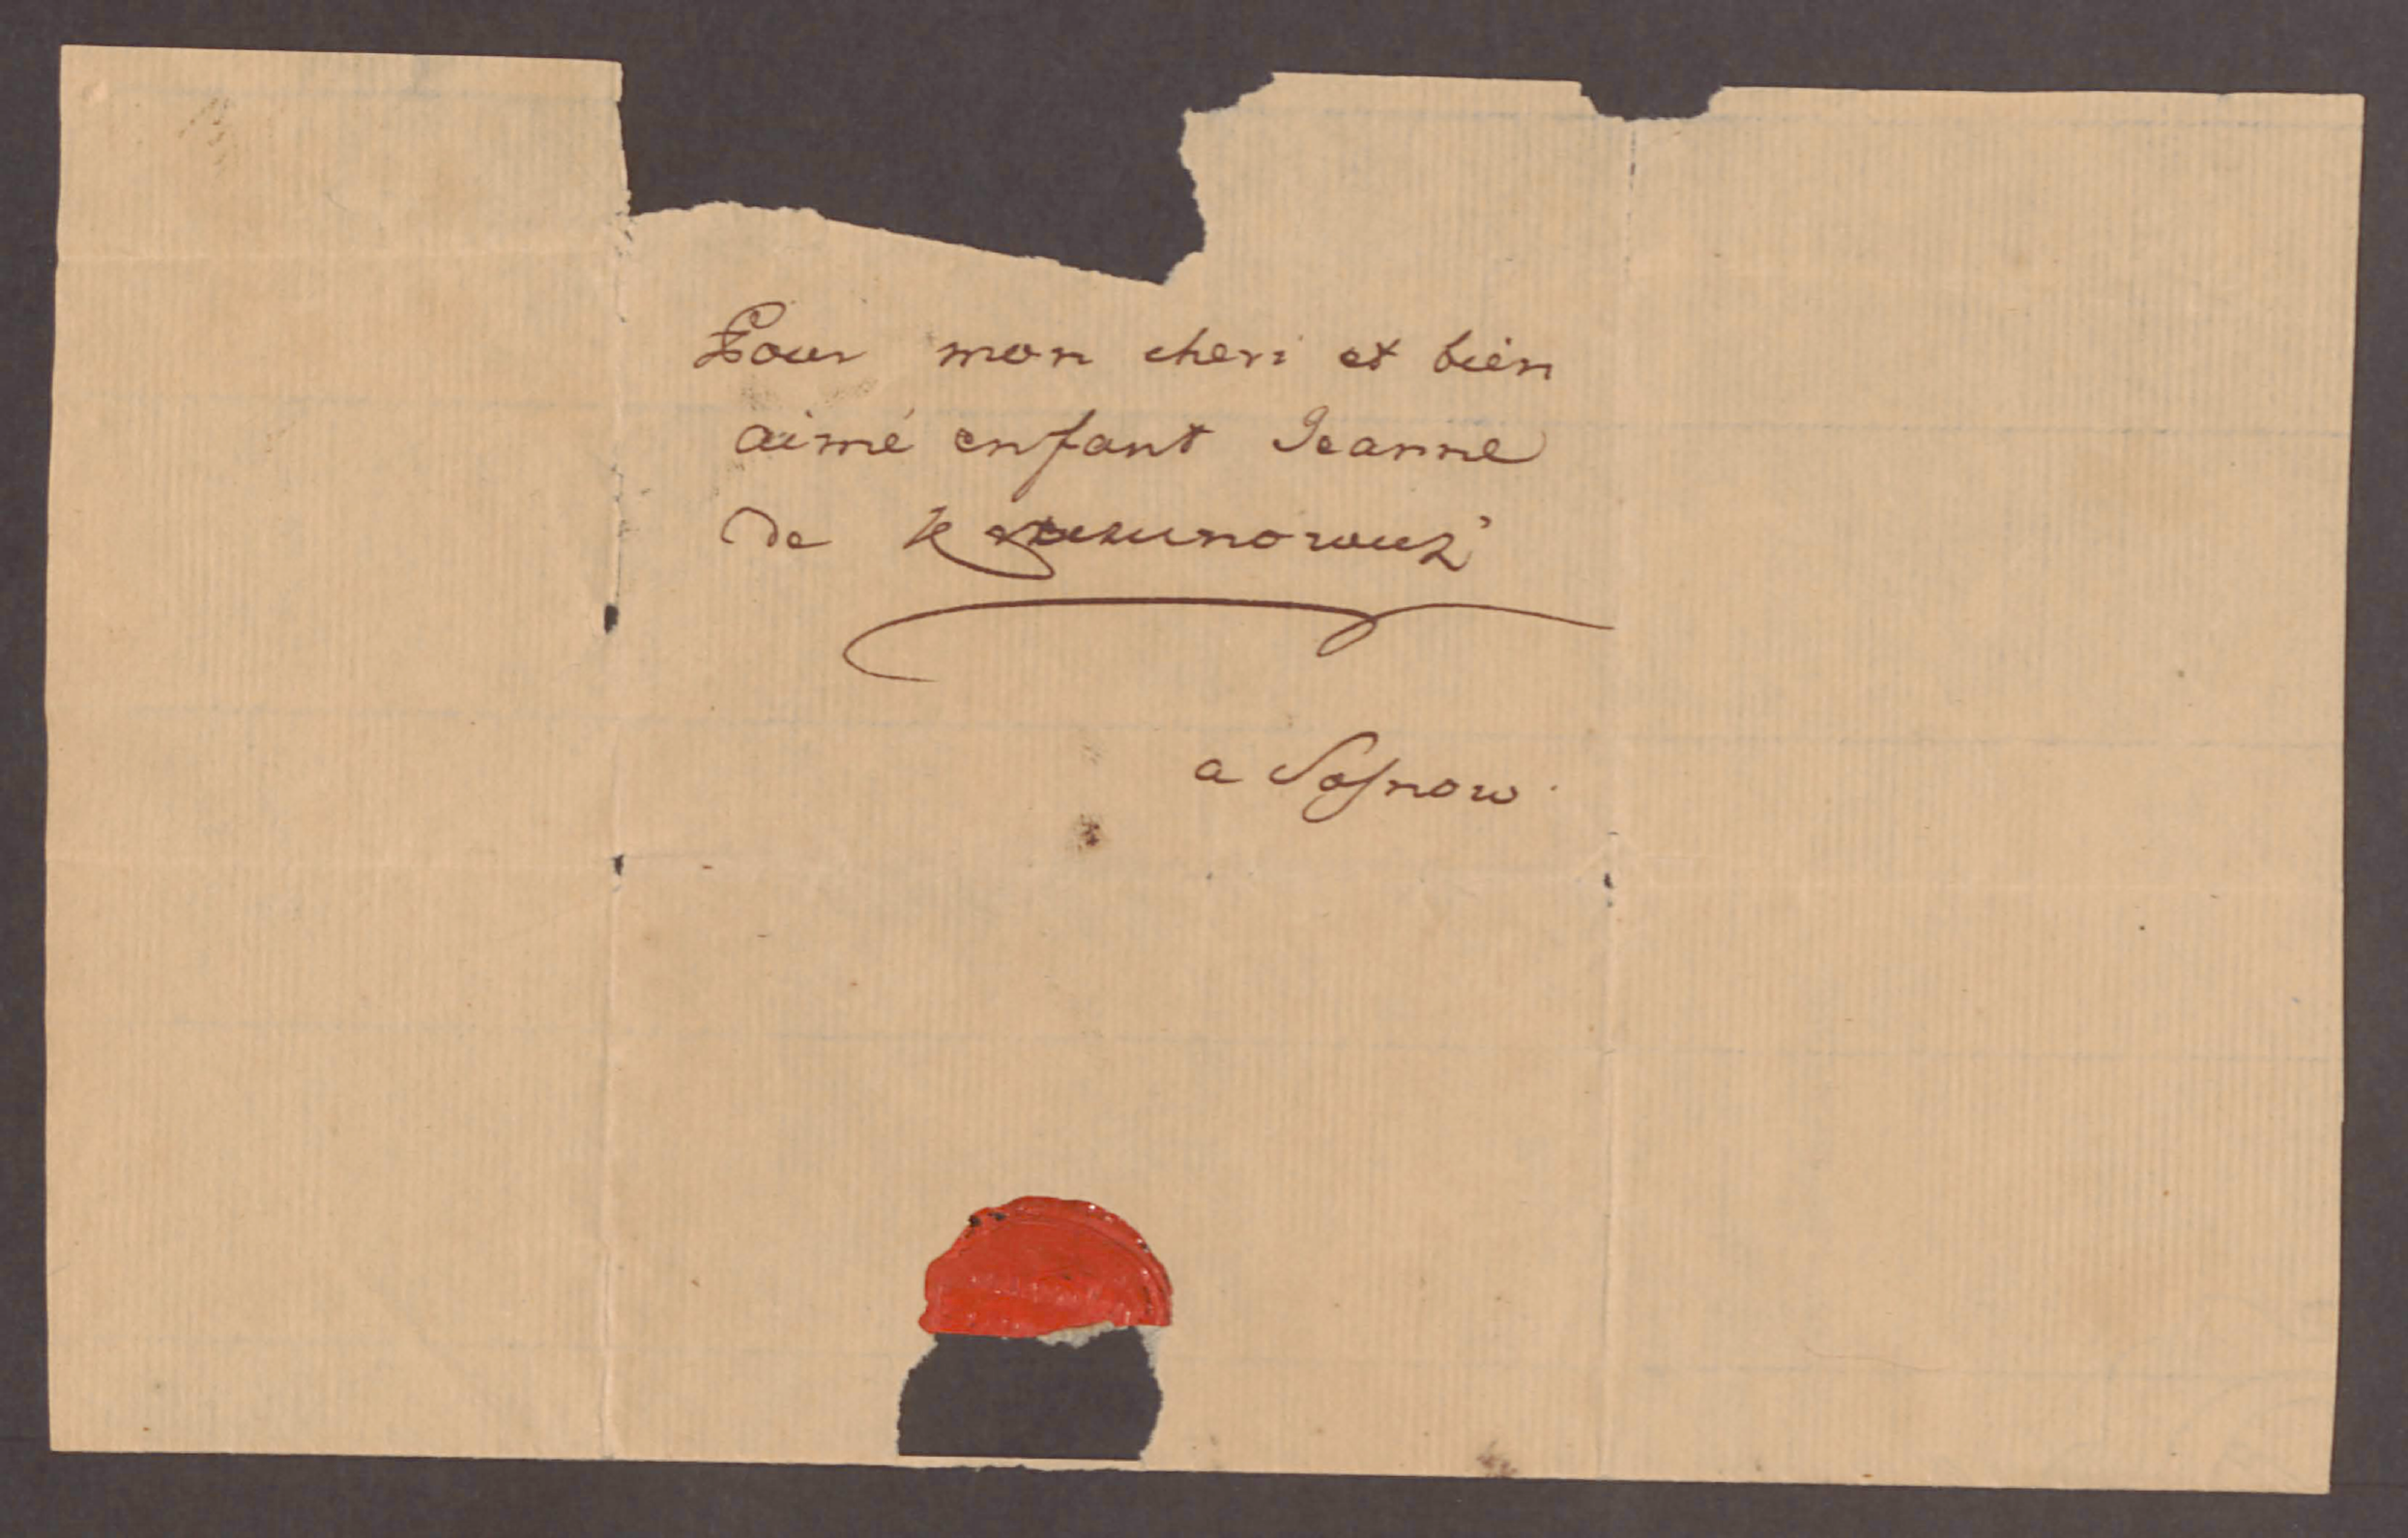 Pour mon cheri et bien
aimé enfant Jeanne
de
a Sosnow